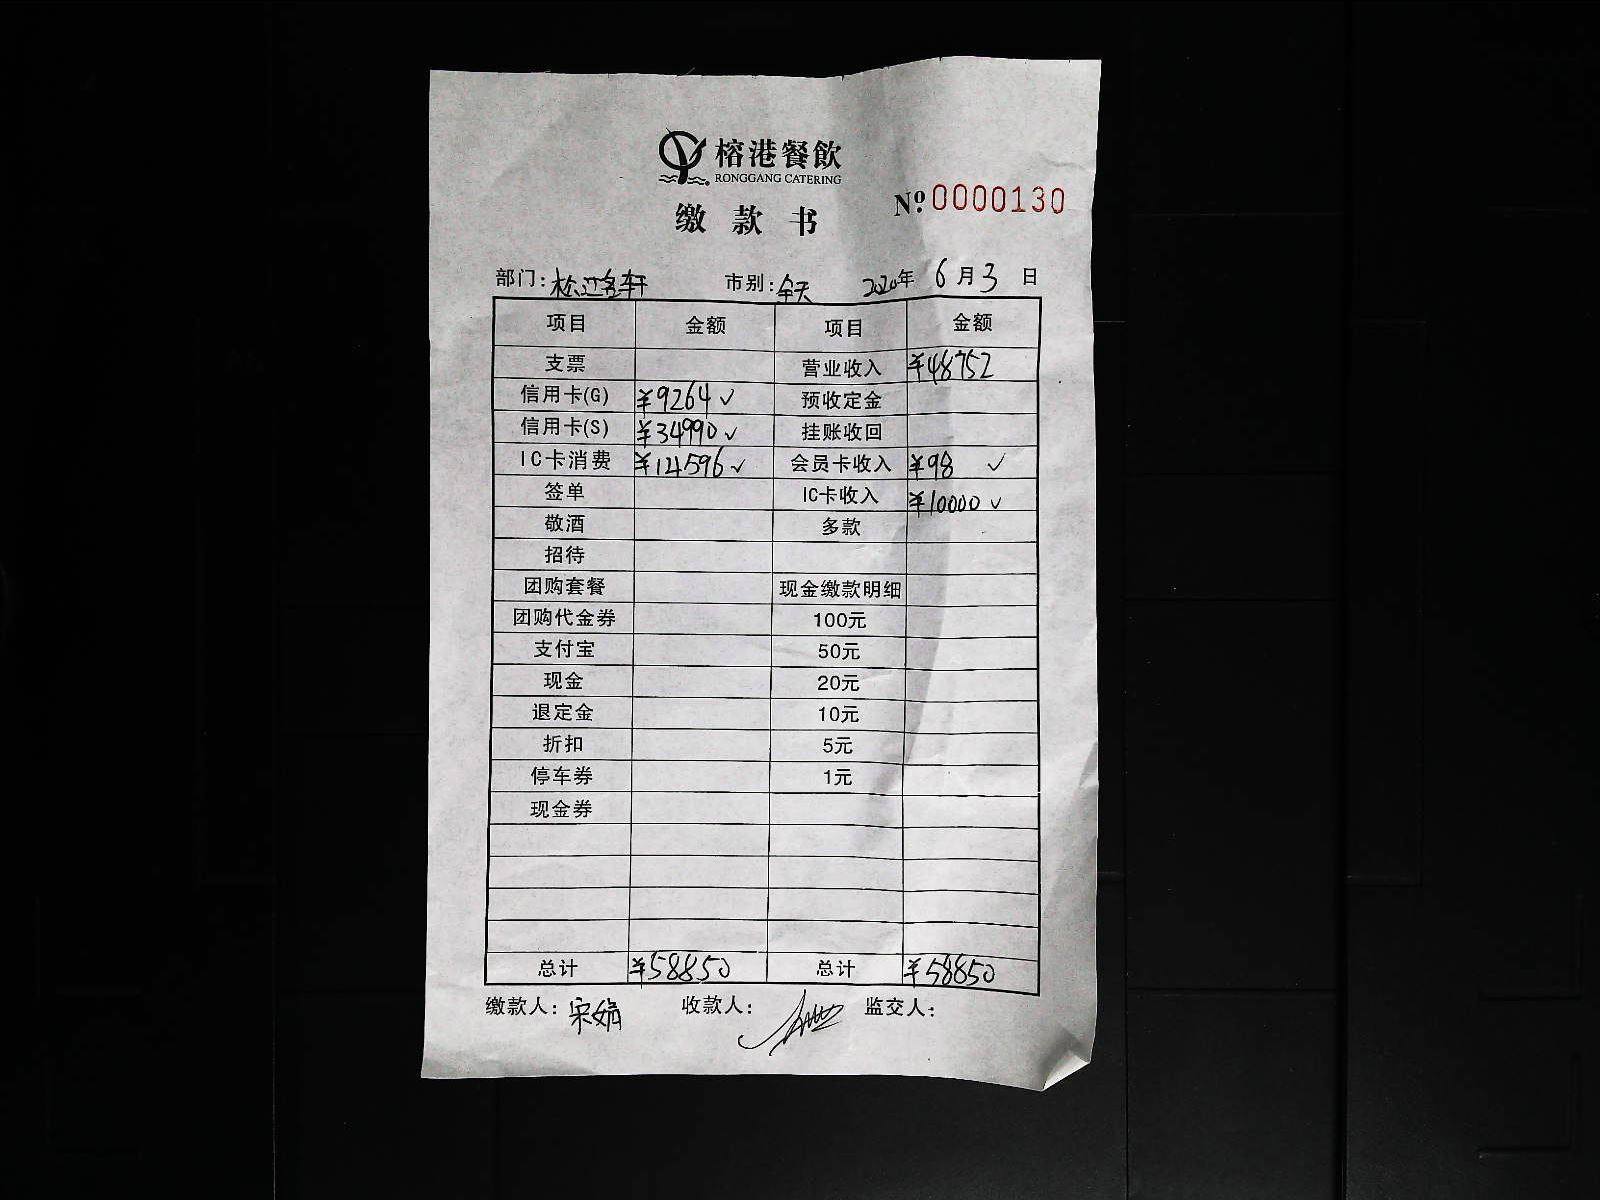 榕港餐飲
RONGGANG CATERING
缴款书
Nº 0000130
部门: 市别:全天 2020年6月3日
项目 金额 项目 金额
支票 营业收入 ¥48752
信用卡(G) ¥9264✓ 预收定金
信用卡(S) ¥34990✓ 挂账收回
IC卡消费 ¥14596✓ 会员卡收入 ¥98 ✓
签单 IC卡收入 ¥10000✓
敬酒 多款
招待
团购套餐 现金缴款明细
团购代金券 100元
支付宝 50元
现金 20元
退定金 10元
折扣 5元
停车券 1元
现金券
总计 ¥58850 总计 ¥58850
缴款人:宋娟 收款人: 监交人: